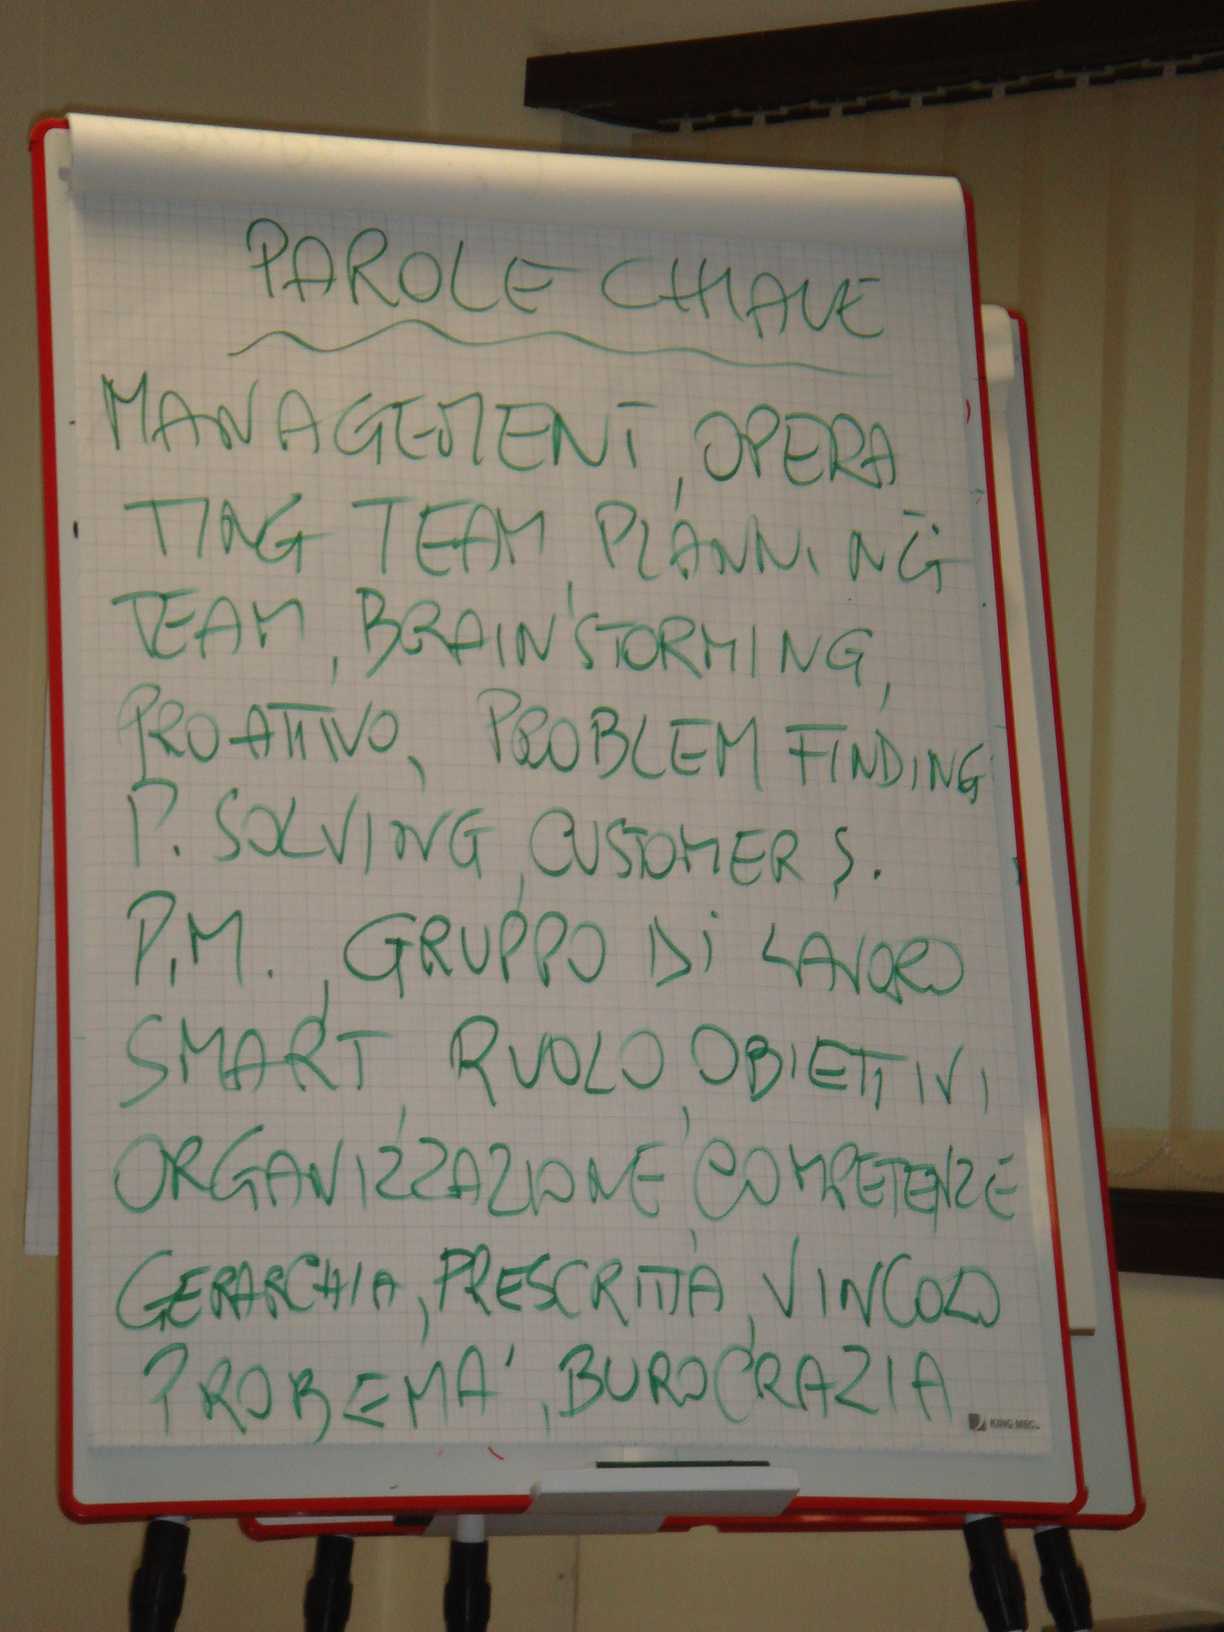 PAROLE CHIAVE
MANAGEMENT, OPERA
TING TEAM, PLANNING
TEAM, BRAINSTORMING,
PROATTIVO, PROBLEM FINDING
P. SOLVING, CUSTOMER S.
P.M., GRUPPO DI LAVORO
SMART, RUOLO, OBIETTIVI
ORGANIZZAZIONE, COMPETENZE
GERARCHIA, PRESCRITTA, VINCOLO
PROBEMA, BUROCRAZIA
KING MEC